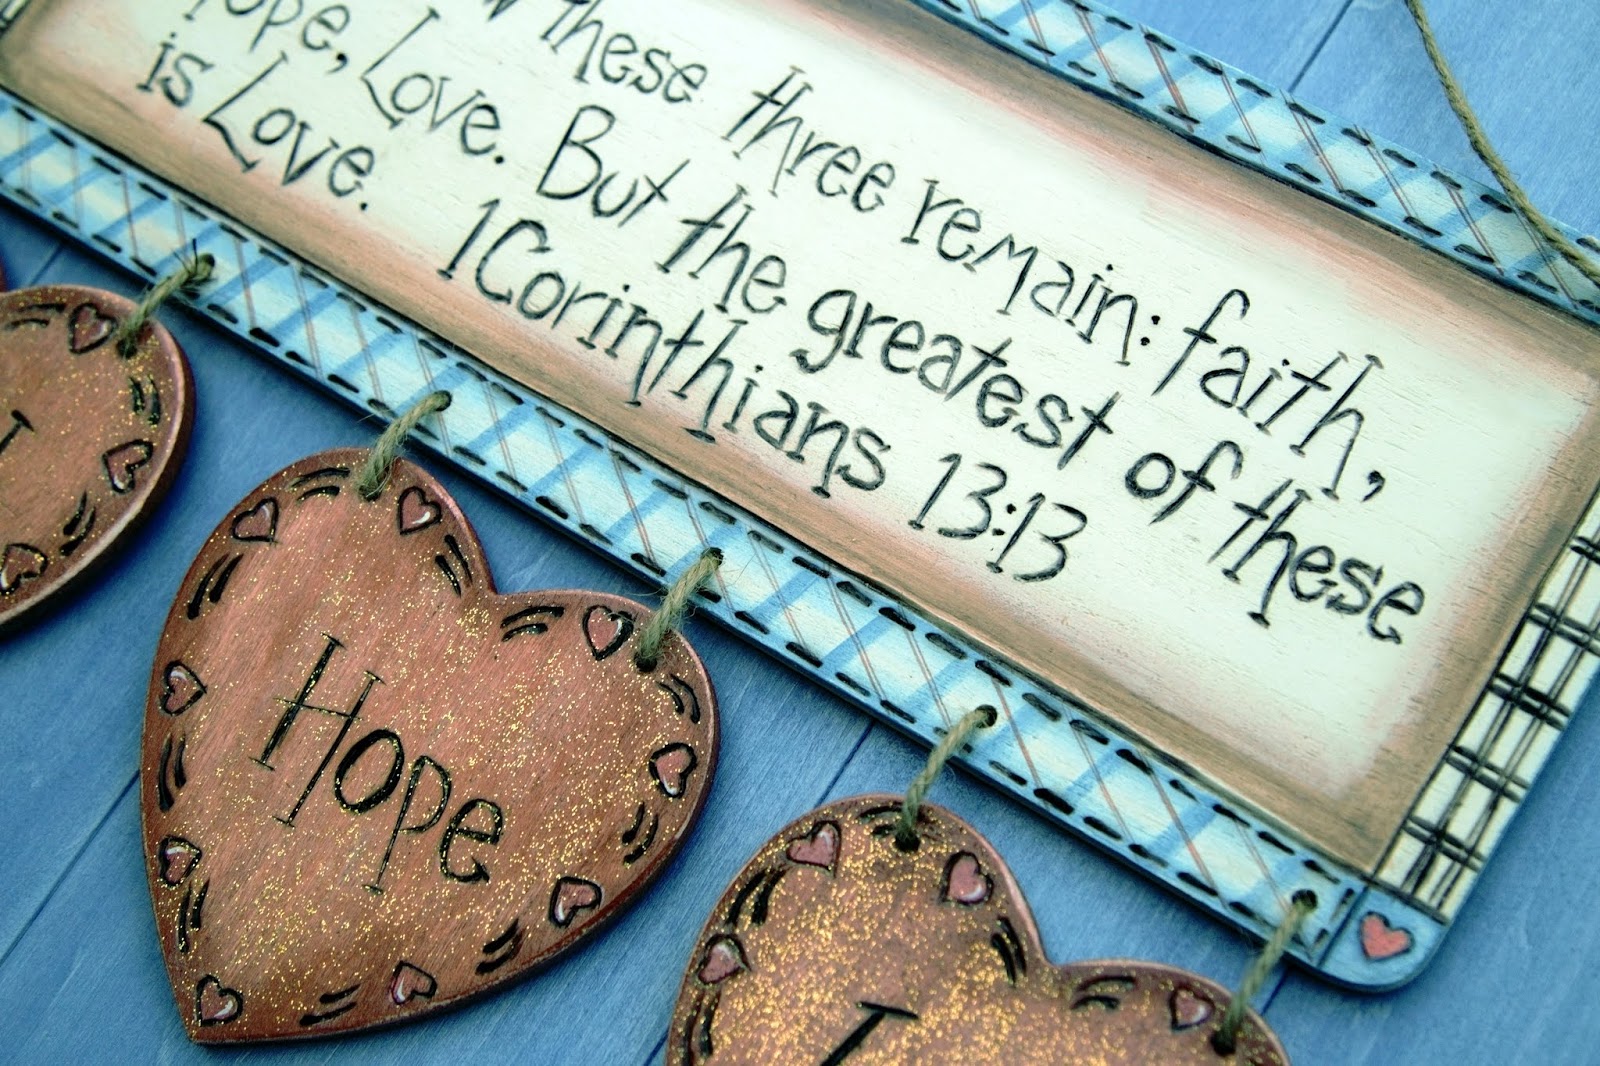 these three remain: faith,
Hope, Love. But the greatest of these
is Love. 1 Corinthians 13:13
Hope